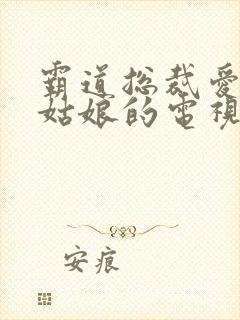 霸道总裁愛
姑娘的電視
安痕